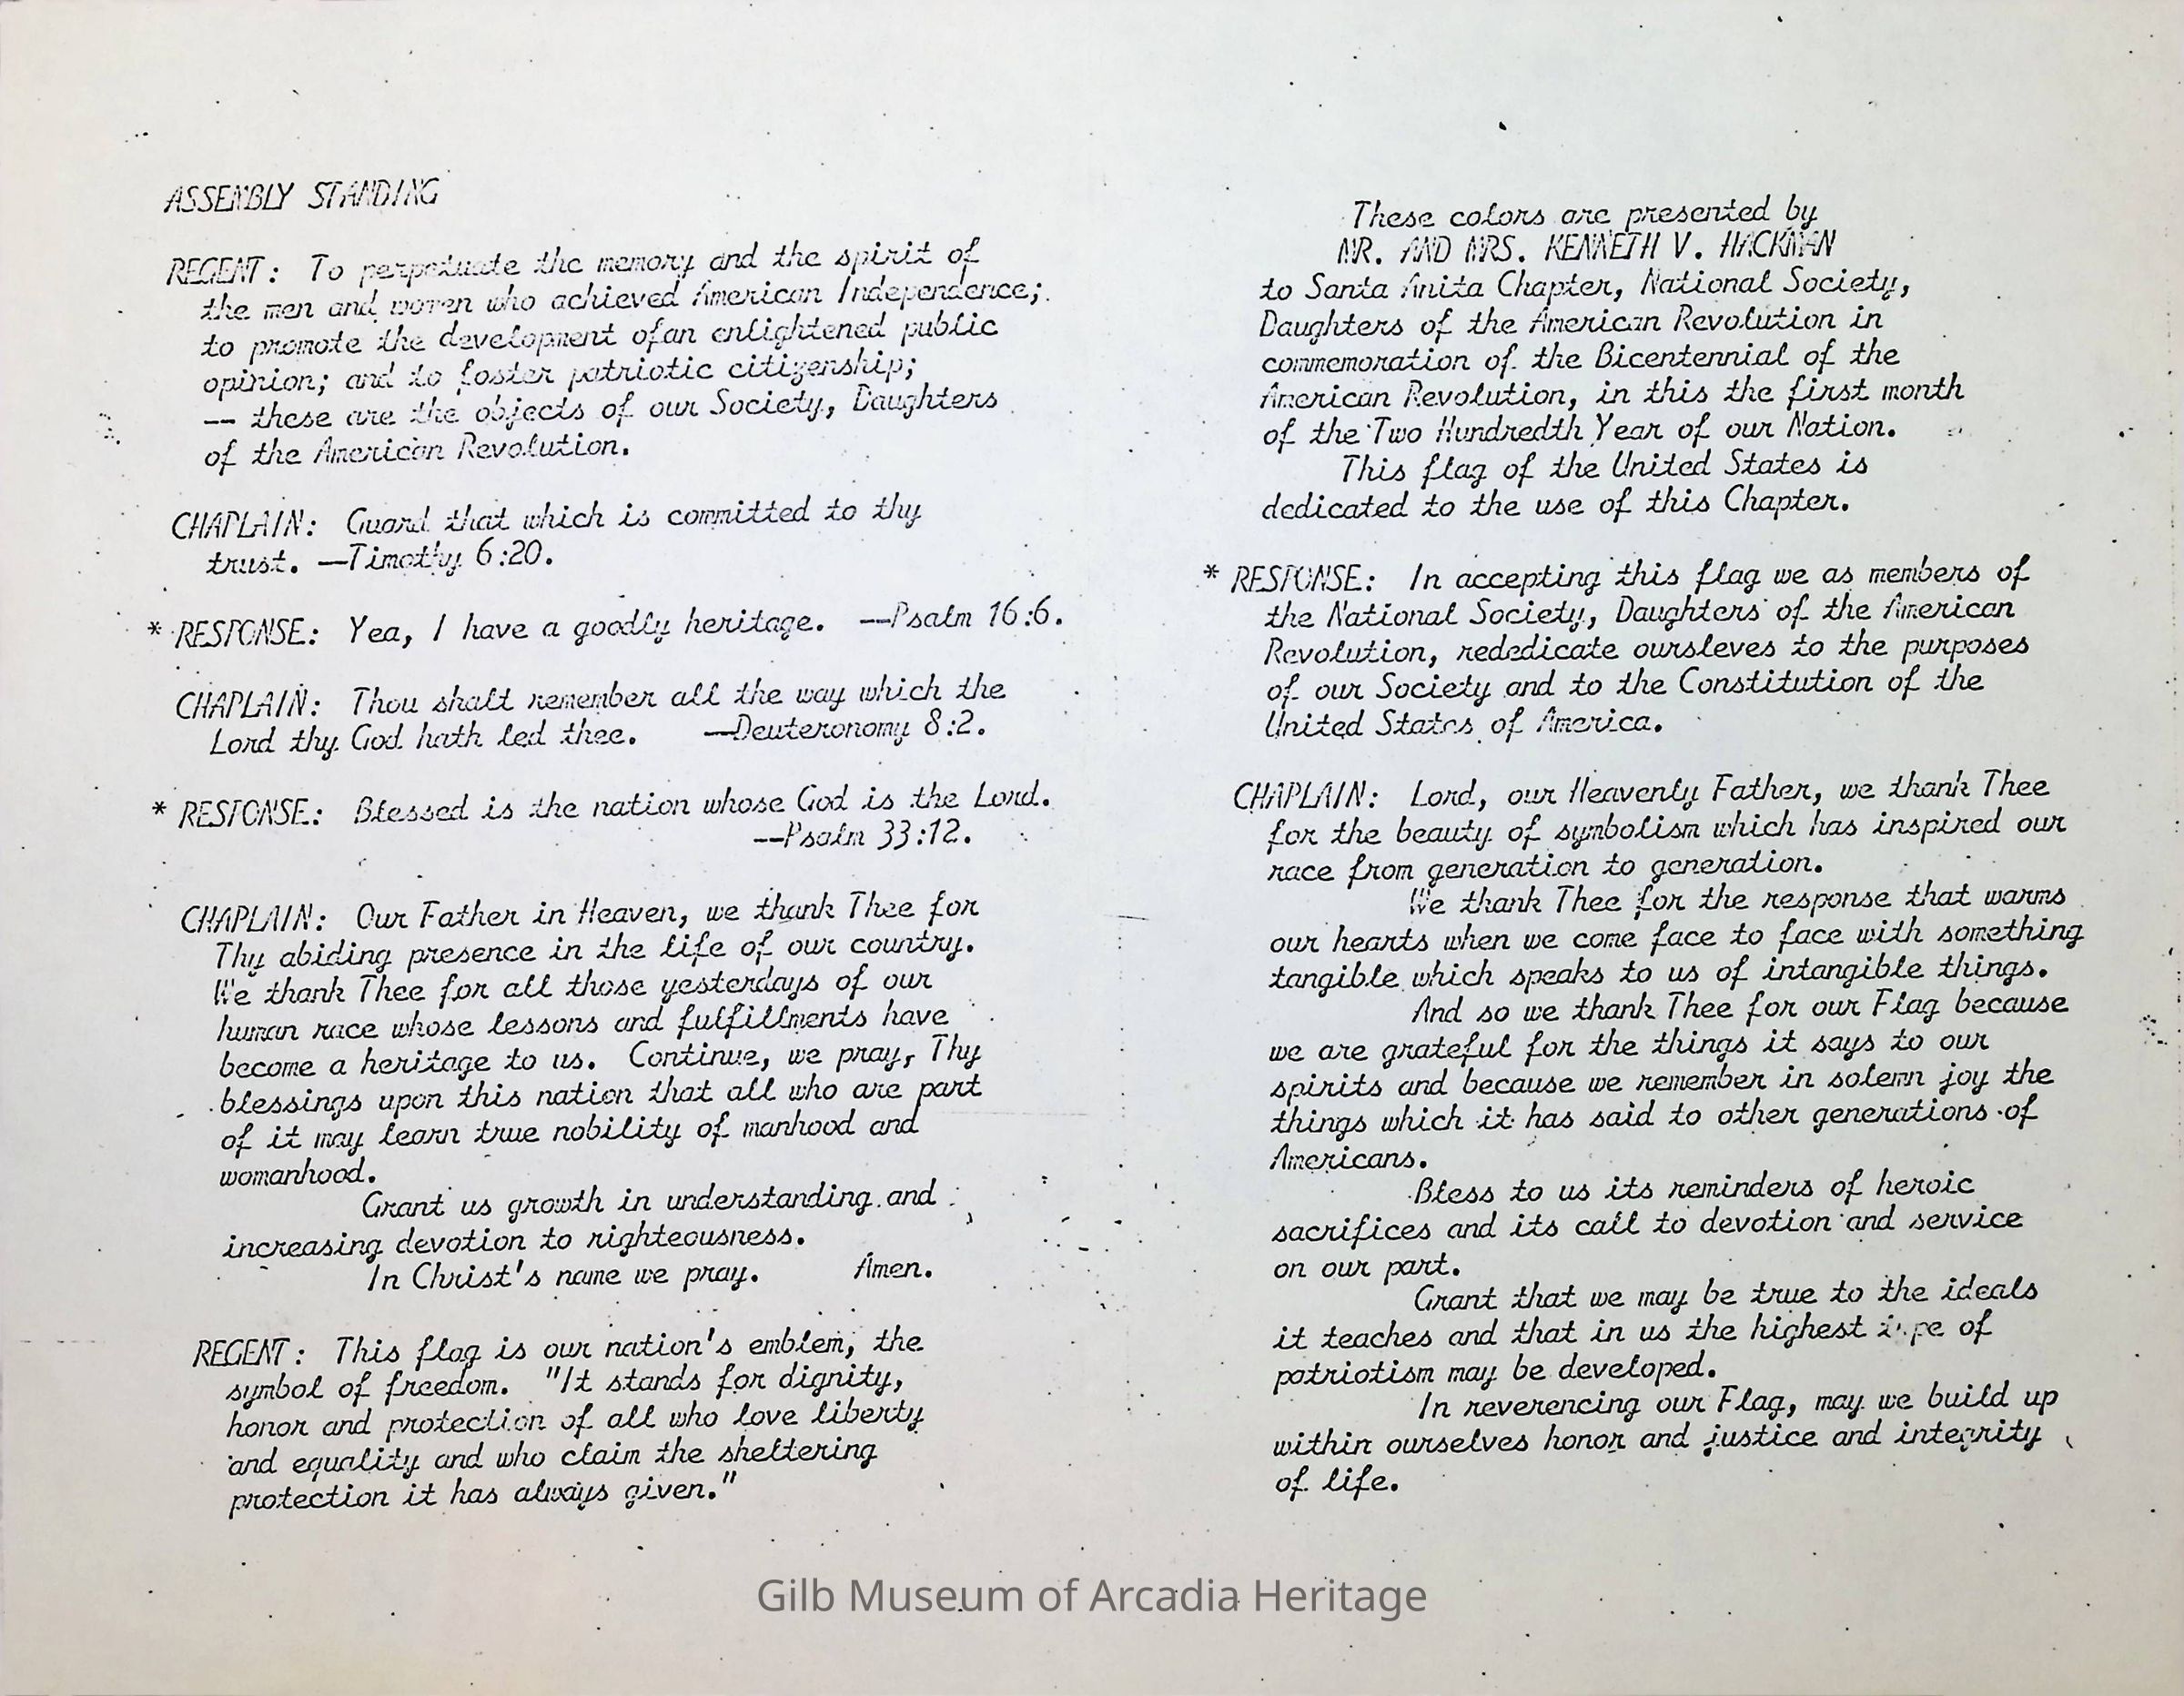 ASSEMBLY STANDING
REGENT: To perpetuate the memory and the spirit of
the men and women who achieved American Independence;
to promote the development ofan enlightened public
opinion; and to foster patriotic citizenship;
-- these are the objects of our Society, Daughters
of the American Revolution.
CHAPLAIN: Guard that which is committed to thy
trust. —Timothy 6:20.
* RESPONSE: Yea, I have a goodly heritage. --Psalm 16:6.
CHAPLAIN: Thou shalt remember all the way which the
Lord thy God hath led thee. —Deuteronomy 8:2.
* RESPONSE: Blessed is the nation whose God is the Lord.
--Psalm 33:12.
CHAPLAIN: Our Father in Heaven, we thank Thee for
Thy abiding presence in the life of our country.
We thank Thee for all those yesterdays of our
human race whose lessons and fulfillments have
become a heritage to us. Continue, we pray, Thy
blessings upon this nation that all who are part
of it may learn true nobility of manhood and
womanhood.
Grant us growth in understanding and
increasing devotion to righteousness.
In Christ's name we pray. Amen.
REGENT: This flag is our nation's emblem, the
symbol of freedom. "It stands for dignity,
honor and protection of all who love liberty
and equality and who claim the sheltering
protection it has always given."
These colors are presented by
MR. AND MRS. KENNETH V. HACKMAN
to Santa Anita Chapter, National Society,
Daughters of the American Revolution in
commemoration of the Bicentennial of the
American Revolution, in this the first month
of the Two Hundredth Year of our Nation.
This flag of the United States is
dedicated to the use of this Chapter.
* RESPONSE: In accepting this flag we as members of
the National Society, Daughters of the American
Revolution, rededicate oursleves to the purposes
of our Society and to the Constitution of the
United States of America.
CHAPLAIN: Lord, our Heavenly Father, we thank Thee
for the beauty of symbolism which has inspired our
race from generation to generation.
We thank Thee for the response that warms
our hearts when we come face to face with something
tangible which speaks to us of intangible things.
And so we thank Thee for our Flag because
we are grateful for the things it says to our
spirits and because we remember in solemn joy the
things which it has said to other generations of
Americans.
Bless to us its reminders of heroic
sacrifices and its call to devotion and service
on our part.
Grant that we may be true to the ideals
it teaches and that in us the highest type of
patriotism may be developed.
In reverencing our Flag, may we build up
within ourselves honor and justice and integrity
of life.
Gilb Museum of Arcadia Heritage